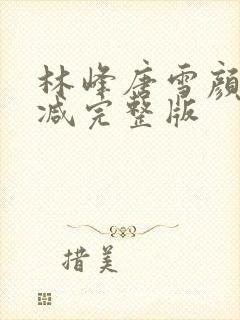 林峰唐雪颜
减完整版
措美